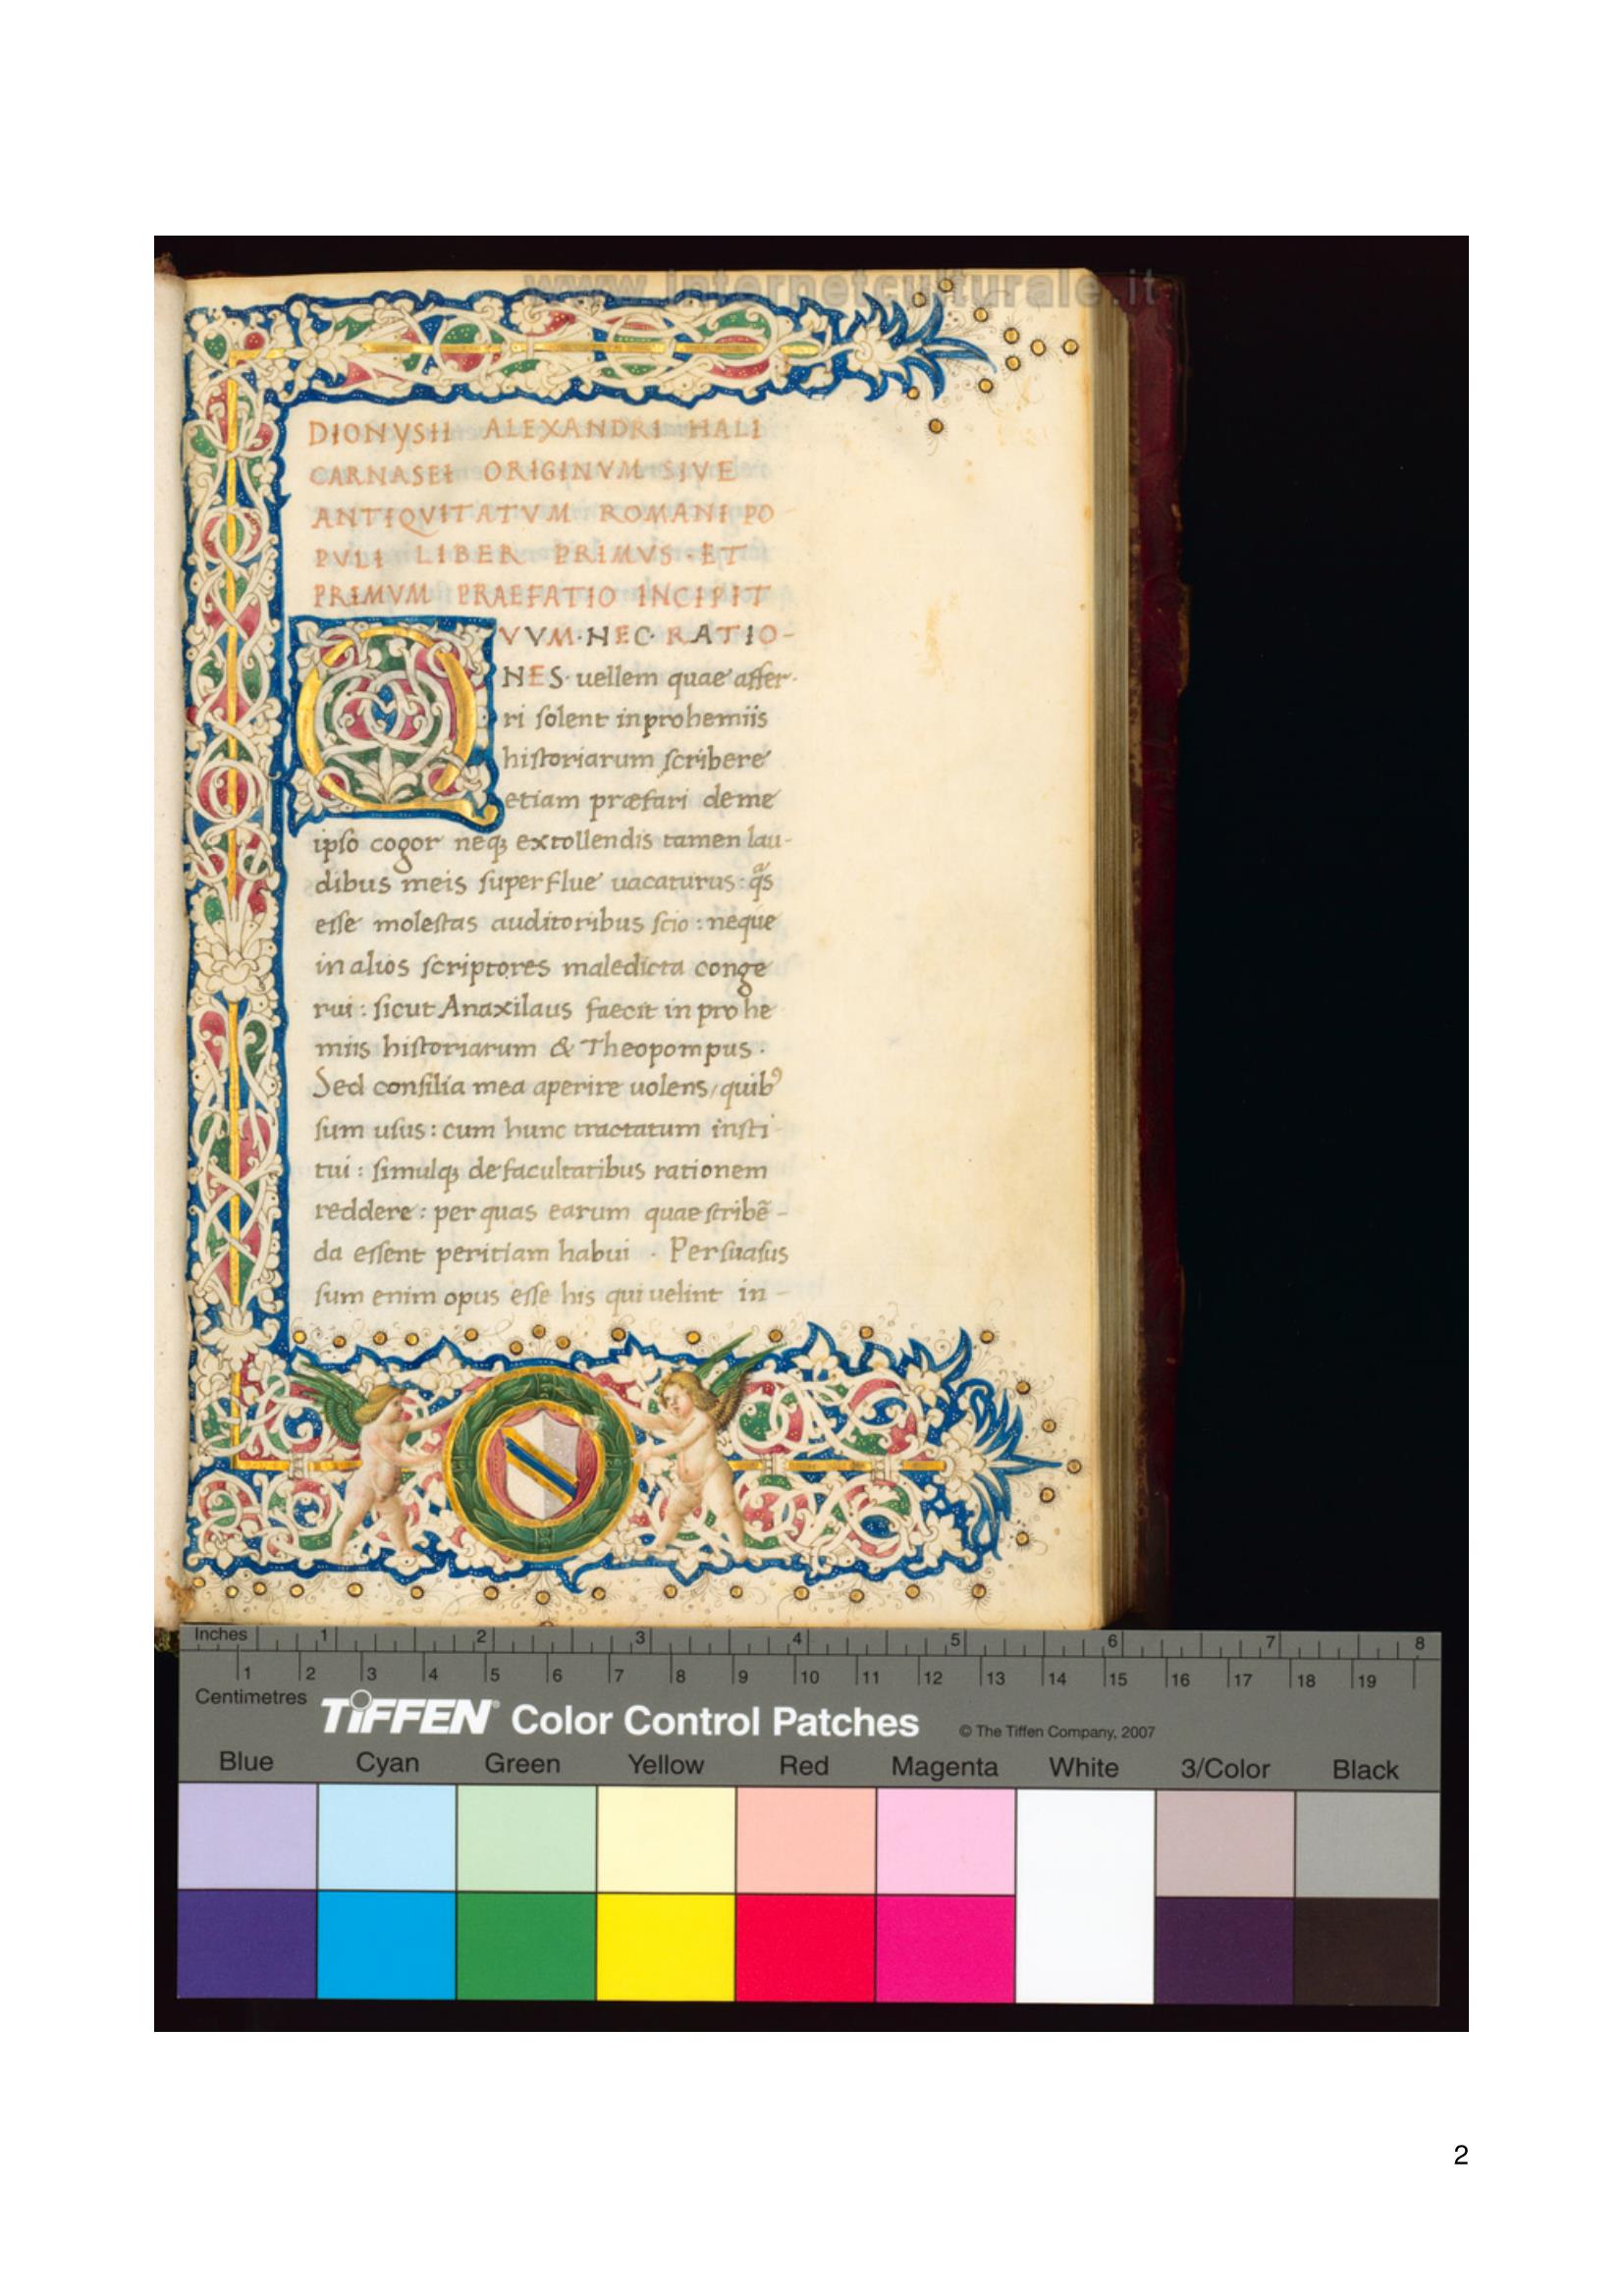 www.internetculturale.it
DIONYSII ALEXANDRI HALI
CARNASEI ORIGINVM SIVE
ANTIQVITATVM ROMANI PO
PVLI LIBER PRIMVS · ET
PRIMVM PRAEFATIO INCIPIT
QVVM · NEC · RATIO-
NES · uellem quae affer-
ri ſolent in prohemiis
hiſtoriarum ſcribere
etiam præfari de me
ipſo cogor neqꝫ extollendis tamen lau-
dibus meis ſuperflue uacaturus : qͣs
eſſe moleſtas auditoribus ſcio : neque
in alios ſcriptores maledicta conge
rui : ſicut Anaxilaus faecit in prohe
miis hiſtoriarum & Theopompus .
Sed conſilia mea aperire uolens / quibꝰ
ſum uſus : cum hunc tractatum inſti-
tui : ſimulqꝫ de facultatibus rationem
reddere : per quas earum quae ſcribẽ-
da eſſent peritiam habui . Perſuaſus
ſum enim opus eſſe his qui uelint in-
Inches 1 2 3 4 5 6 7 8
1 2 3 4 5 6 7 8 9 10 11 12 13 14 15 16 17 18 19
Centimetres
TIFFEN® Color Control Patches © The Tiffen Company, 2007
Blue Cyan Green Yellow Red Magenta White 3/Color Black
2